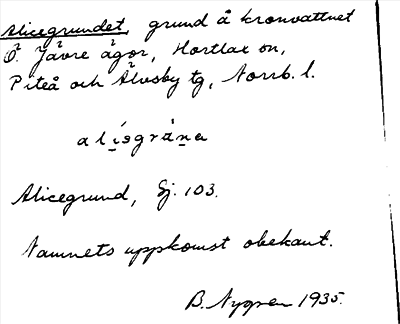 Alicegrundet, grund å kronvattnet
Ö. Jävre ägor, Hortlax sn,
Piteå och Älvsby tg, Norrb. l.
Alicegrund, Sj. 103.
Namnets uppkomst obekant.
B. Nygren 1935.